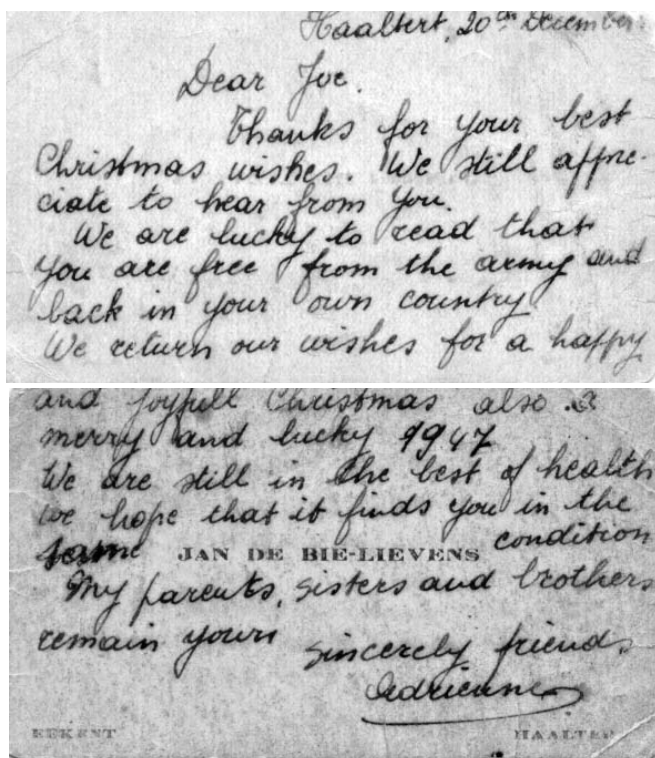 Haaltert, 20th December
Dear Joe.
Thanks for your best
Christmas wishes. We still appre-
ciate to hear from you.
We are lucky to read that
you are free from the army and
back in your own country
We return our wishes for a happy
and joyfull Christmas also a
merry and lucky 1947
We are still in the best of health
We hope that it finds you in the
same JAN DE BIE-LIEVENS condition
My parents, sisters and brothers
remain yours
sincerely friends
Adrienne
EEKENT HAALTERT